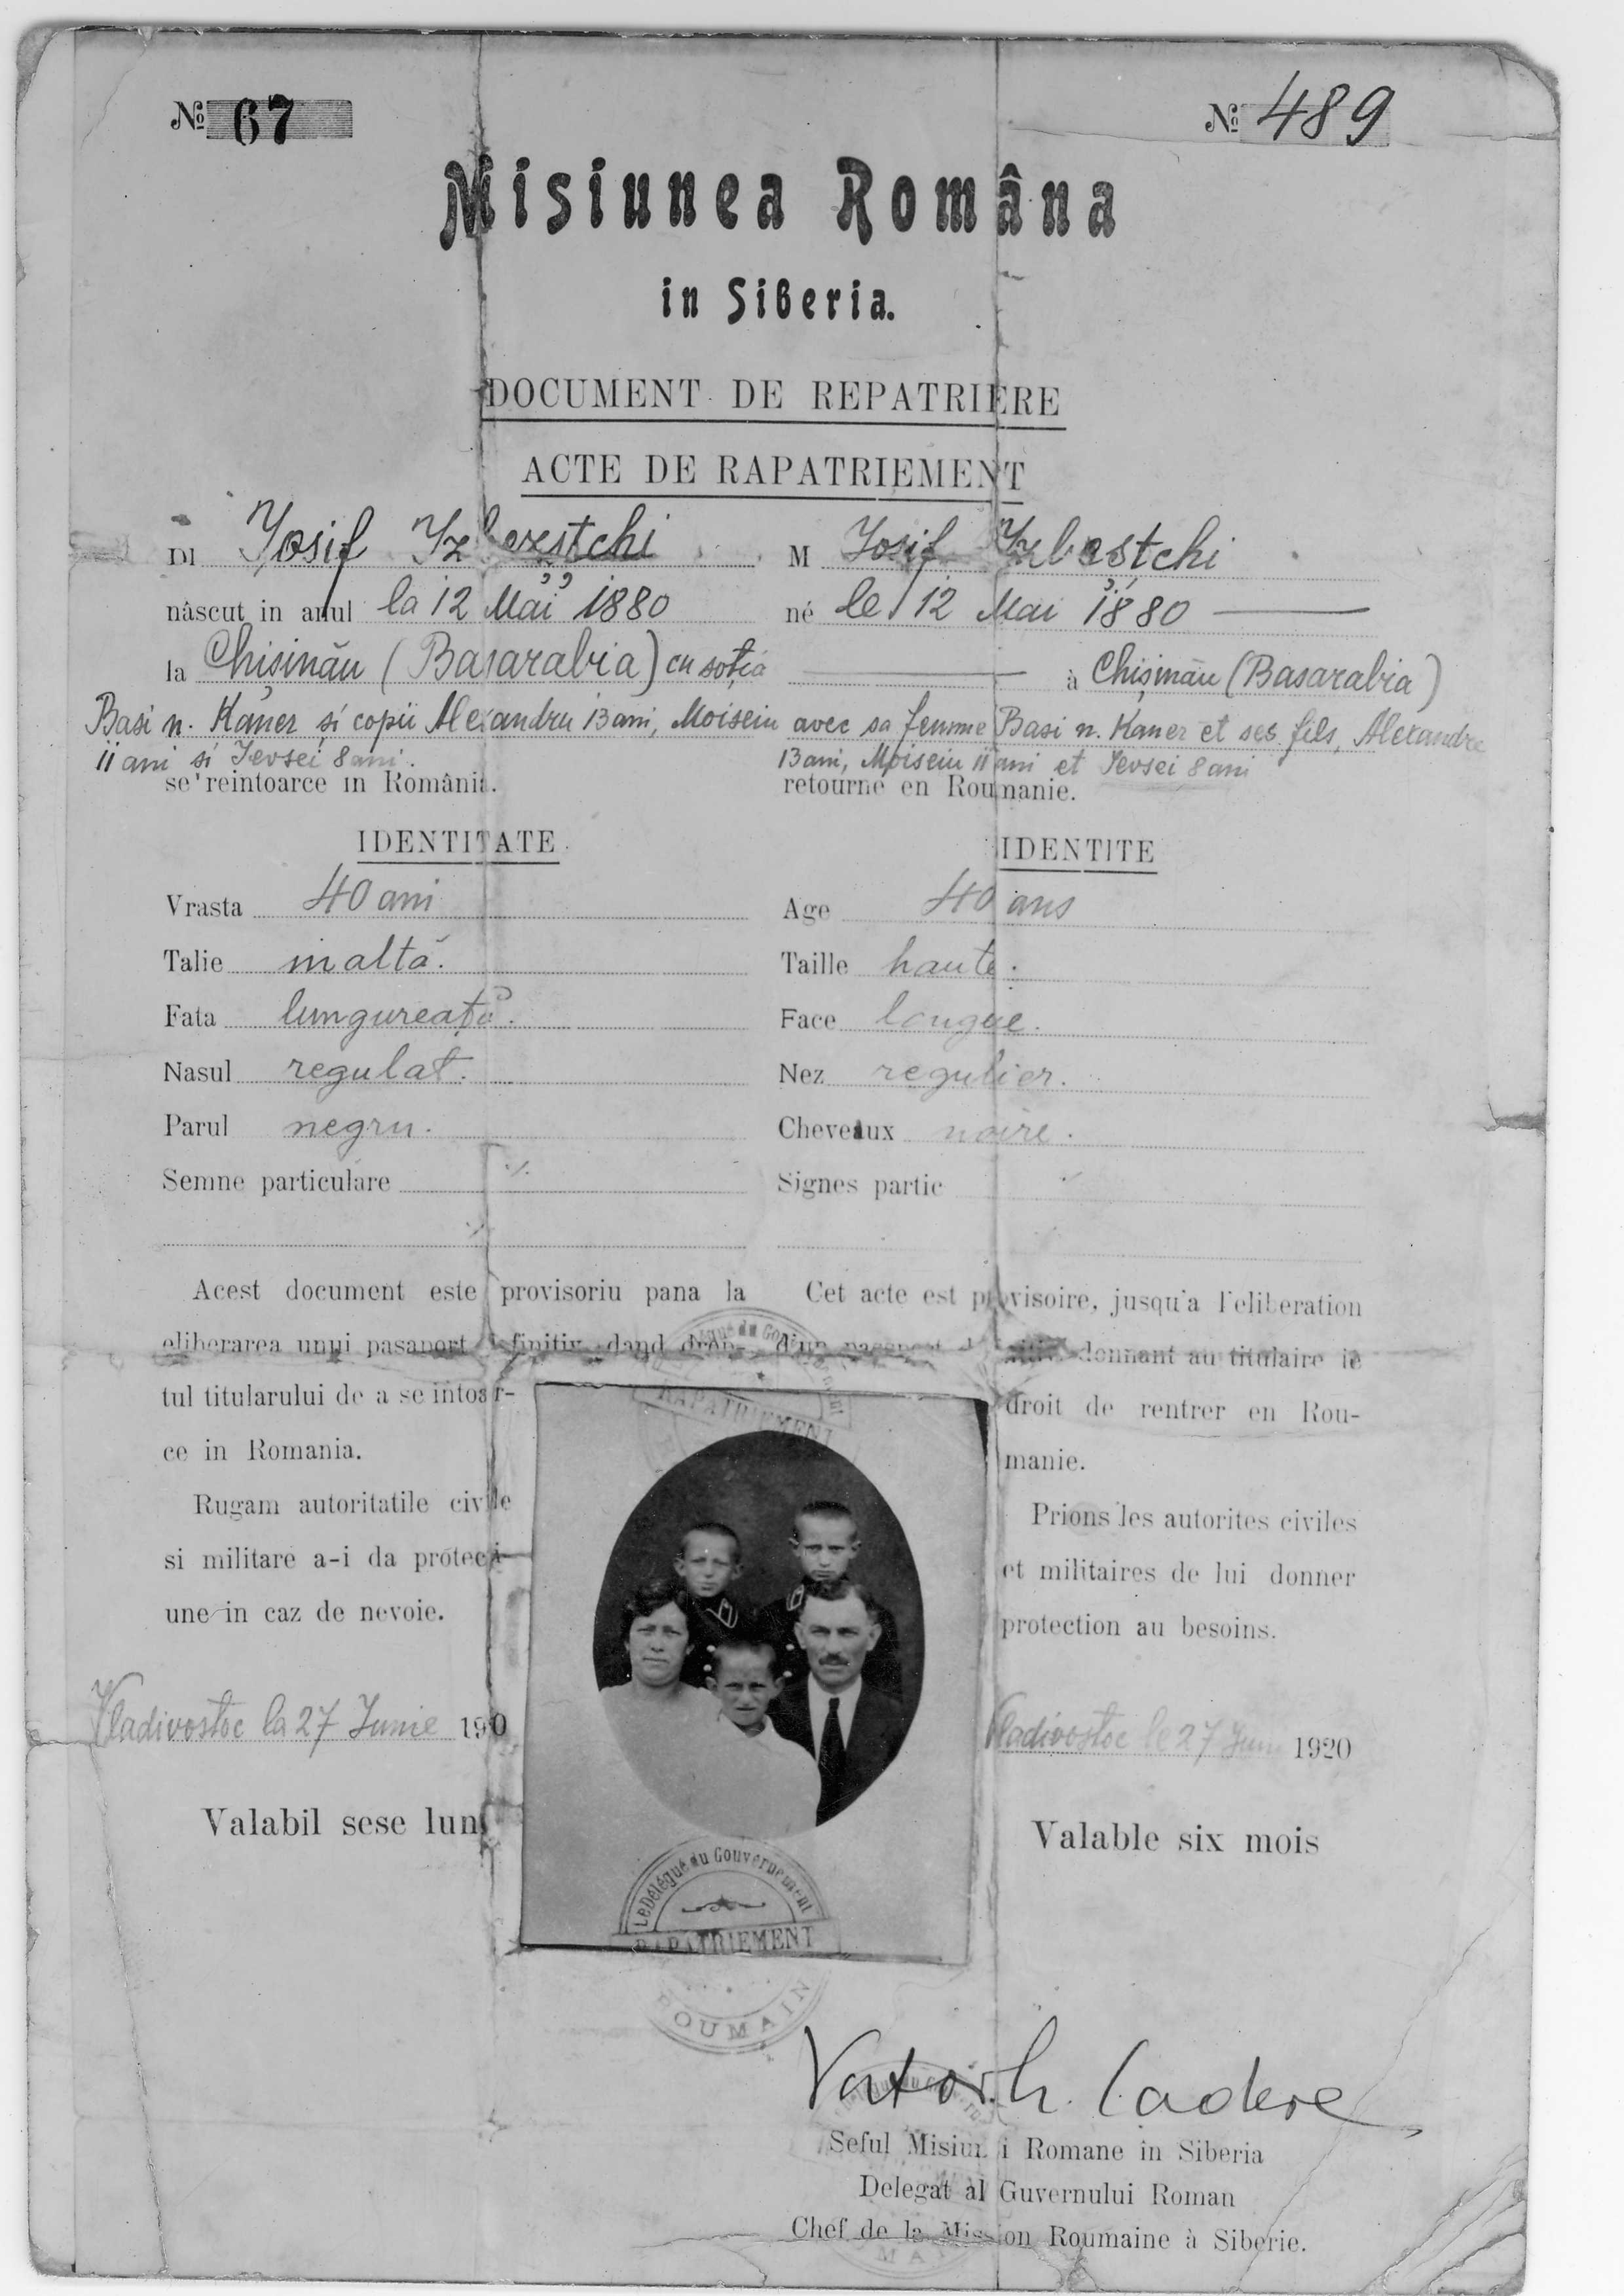 № 67
№ 489
Misiunea Româna
in Siberia.
DOCUMENT DE REPATRIERE
ACTE DE RAPATRIEMENT
Dl Iosif
născut in anul la 12 Mai 1880
la Chișinău (Basarabia) cu soția
Basi n. Kaner și copii Alexandru 13 ani, Moiseiu
11 ani si Ievsei 8 ani.
se reintoarce in România.
M Iosif
né le 12 Mai 1880
à Chișinău (Basarabia)
avec sa femme Basi n. Kaner et ses fils, Alexandre
13 ani, Moiseiu 11 ani et Ievsei 8 ani
retourne en Roumanie.
IDENTITATE
Vrasta 40 ani
Talie inaltă.
Fata lungureață.
Nasul regulat.
Parul negru.
Semne particulare
IDENTITE
Age 40 ans
Taille haute.
Face longue.
Nez regulier.
Cheveaux noire.
Signes partic
Acest document este provisoriu pana la
eliberarea unui pasaport definitiv dand drep-
tul titularului de a se intoar-
ce in Romania.
Rugam autoritatile civile
si militare a-i da protecti-
une in caz de nevoie.
Vladivostoc la 27 Iunie 190
Valabil sese luni
Cet acte est provisoire, jusqu'a l'eliberation
d'un passport donnant au titulaire le
droit de rentrer en Rou-
manie.
Prions les autorites civiles
et militaires de lui donner
protection au besoins.
Vladivostoc le 27 Juin 1920
Valable six mois
RAPATRIEMENT
Le Délégué du Gouvernement
RAPATRIEMENT
ROUMAIN
Cadere
Seful Misiunii Romane in Siberia
Delegat al Guvernului Roman
Chef de la Mission Roumaine à Siberie.